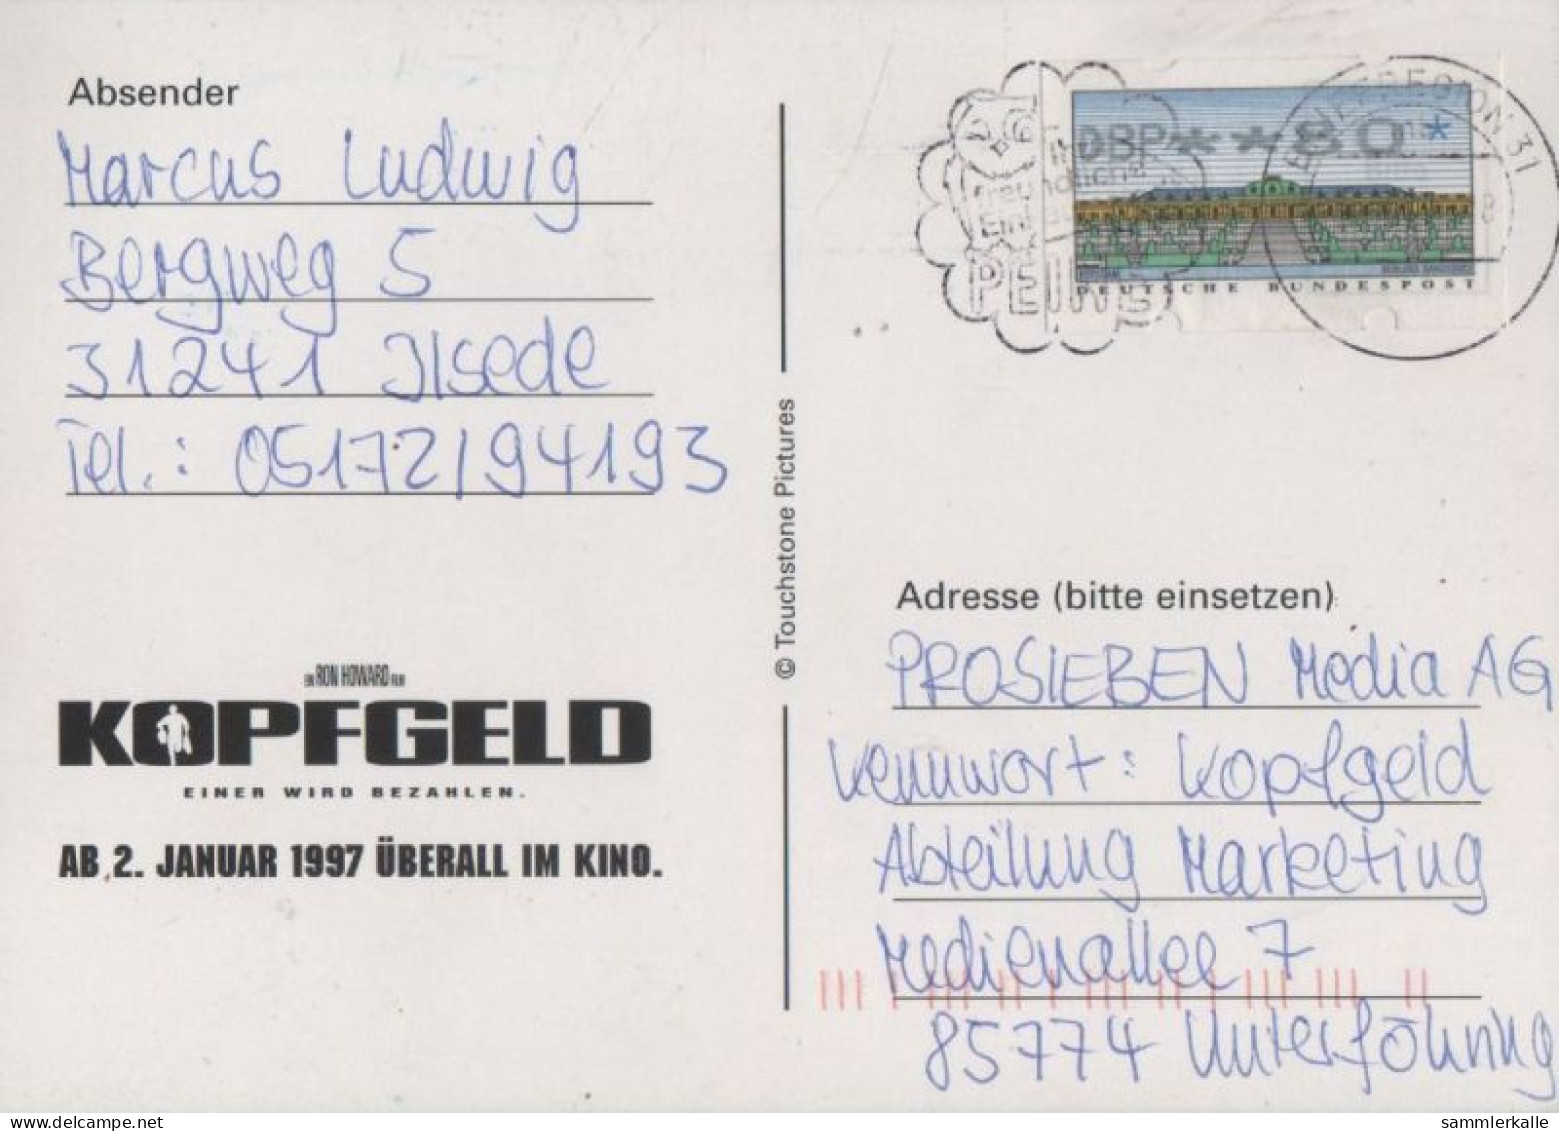 Absender
Marcus Ludwig
Bergweg 5
31241 Ilsede
Tel.: 05172/94193
EIN RON HOWARD FILM
KOPFGELD
EINER WIRD BEZAHLEN.
AB 2. JANUAR 1997 ÜBERALL IM KINO.
© Touchstone Pictures
PEINE
DBP**80*
DEUTSCHE BUNDESPOST
BRIEFREGION 31
Adresse (bitte einsetzen)
PROSIEBEN Media AG
Kennwort: Kopfgeld
Abteilung Marketing
Medienallee 7
85774 Unterföhring
sammlerkalle